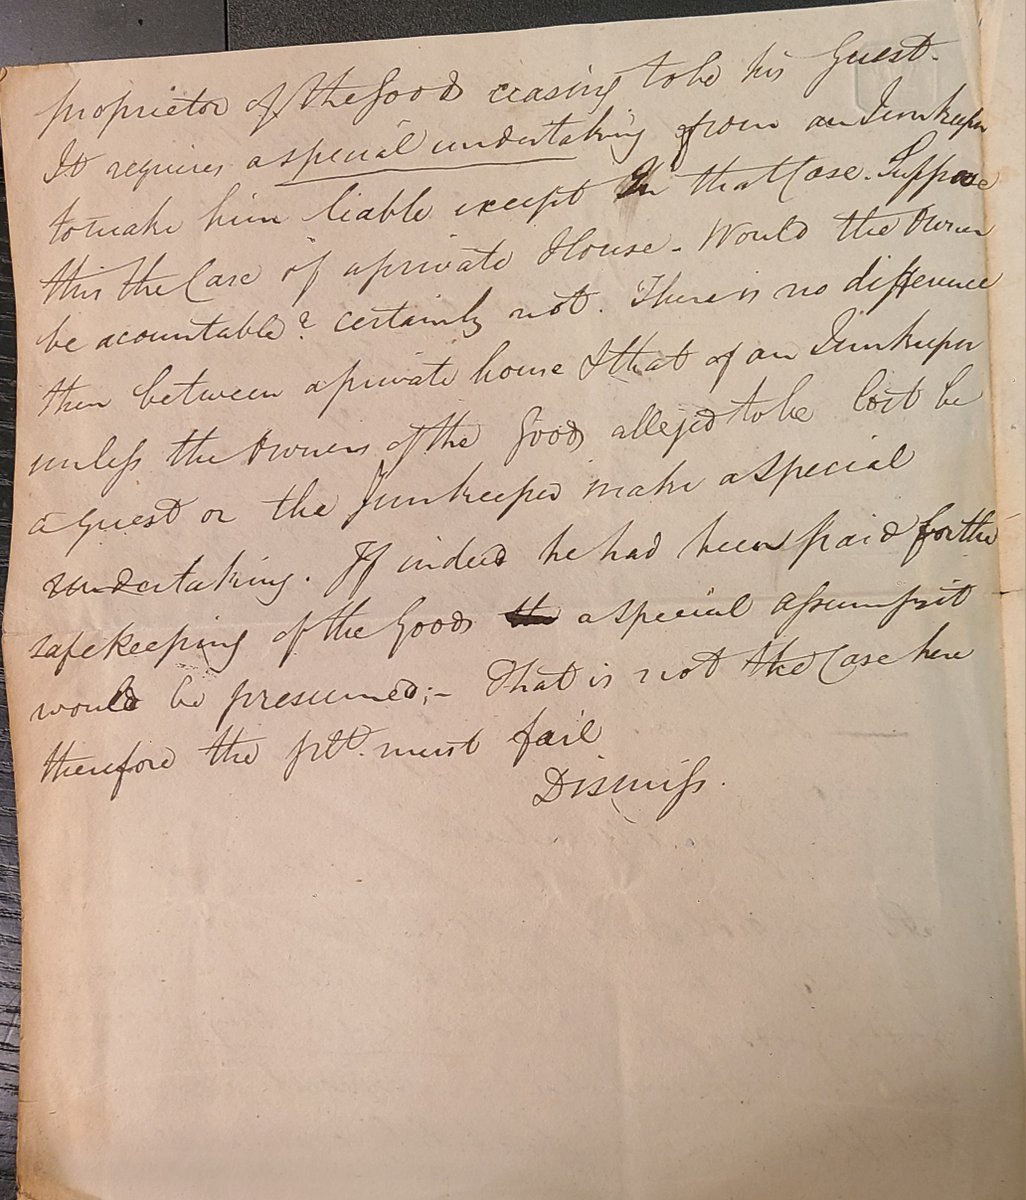 proprietor of the Goods ceasing to be his Guest.
It requires a special undertaking from an Innkeeper
to make him liable except In that Case. Suppose
this the Case of a private House - Would the Owner
be acountable? certainly not. There is no difference
then between a private house & that of an Innkeeper
unless the Owners of the Goods alleged to be lost be
a guest or the Innkeeper make a special
undertaking. If indeed he had been paid for the
safe keeping of the Goods a special assumpsit
would be presumed;- That is not the Case here
therefore the plt. must fail
Dismiss.